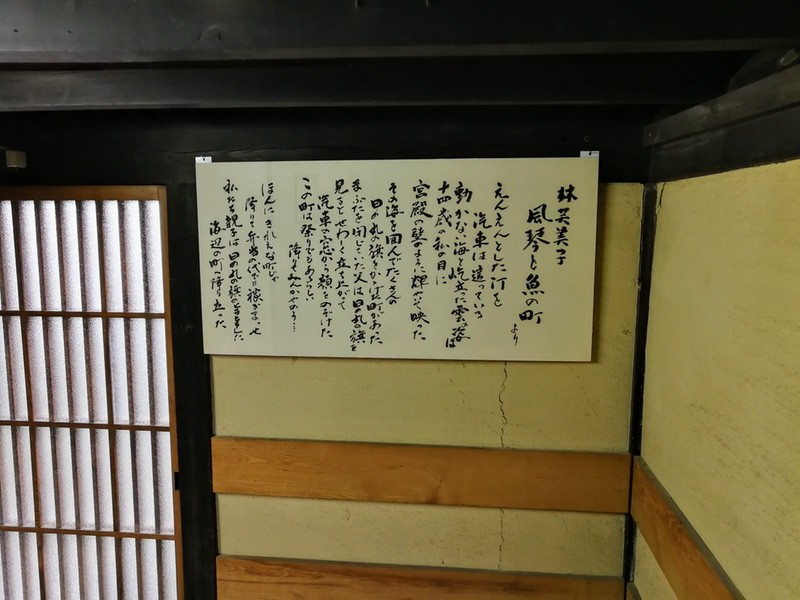 林芙美子
風琴と魚の町
より
えんえんとした汀を
汽車は這っている
動かない海と屹立した雲の景色は
十四歳の私の目に
宮殿の壁のように輝いて映った
その海を囲んでたくさん
日の丸の旗をかかげた町があった
まぶたを閉じていた父は日の丸の旗を
見るとせわしく立ち上がって
汽車の窓から顔をのぞけた
この町は祭りでもあるらしい
降りてみんかやのう…
ほんにきれえな町じゃ
降りて弁当の代でも稼ぎまっせ
私たち親子は日の丸の旗の
海辺の町へ降り立った